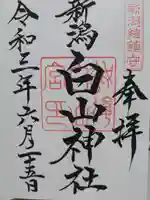 奉拝
新潟
白山神社
令和二年六月十五日
新潟総鎮守